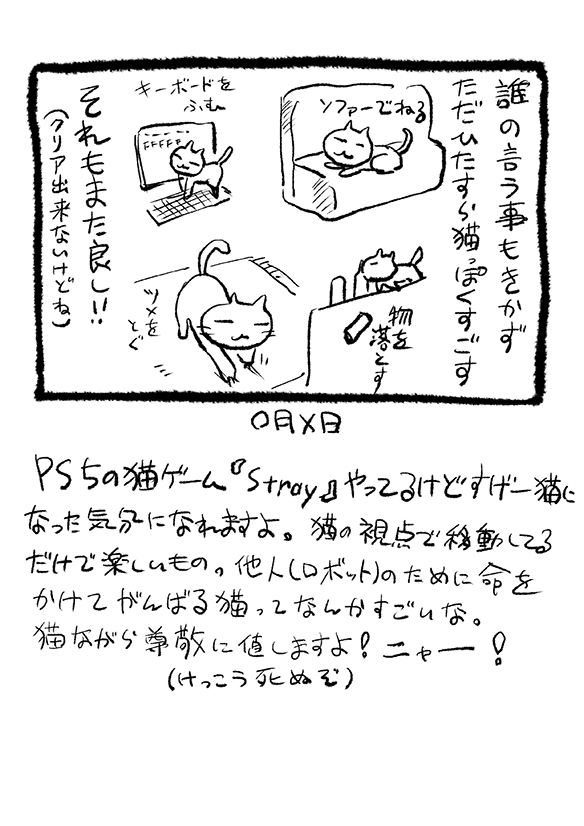 誰の言う事もきかず
ただひたすら猫っぽくすごす
ソファーでねる
キーボードを
ふむ
FFFFF
物を
落とす
ツメを
とぐ
それもまた良し!!
(クリア出来ないけどね)
〇月×日
PS5の猫ゲーム『Stray』やってるけどすげー猫に
なった気分になれますよ。猫の視点で移動してる
だけで楽しいもの。他人(ロボット)のために命を
かけてがんばる猫ってなんかすごいな。
猫ながら尊敬に値しますよ!ニャー!
(けっこう死ぬぞ)